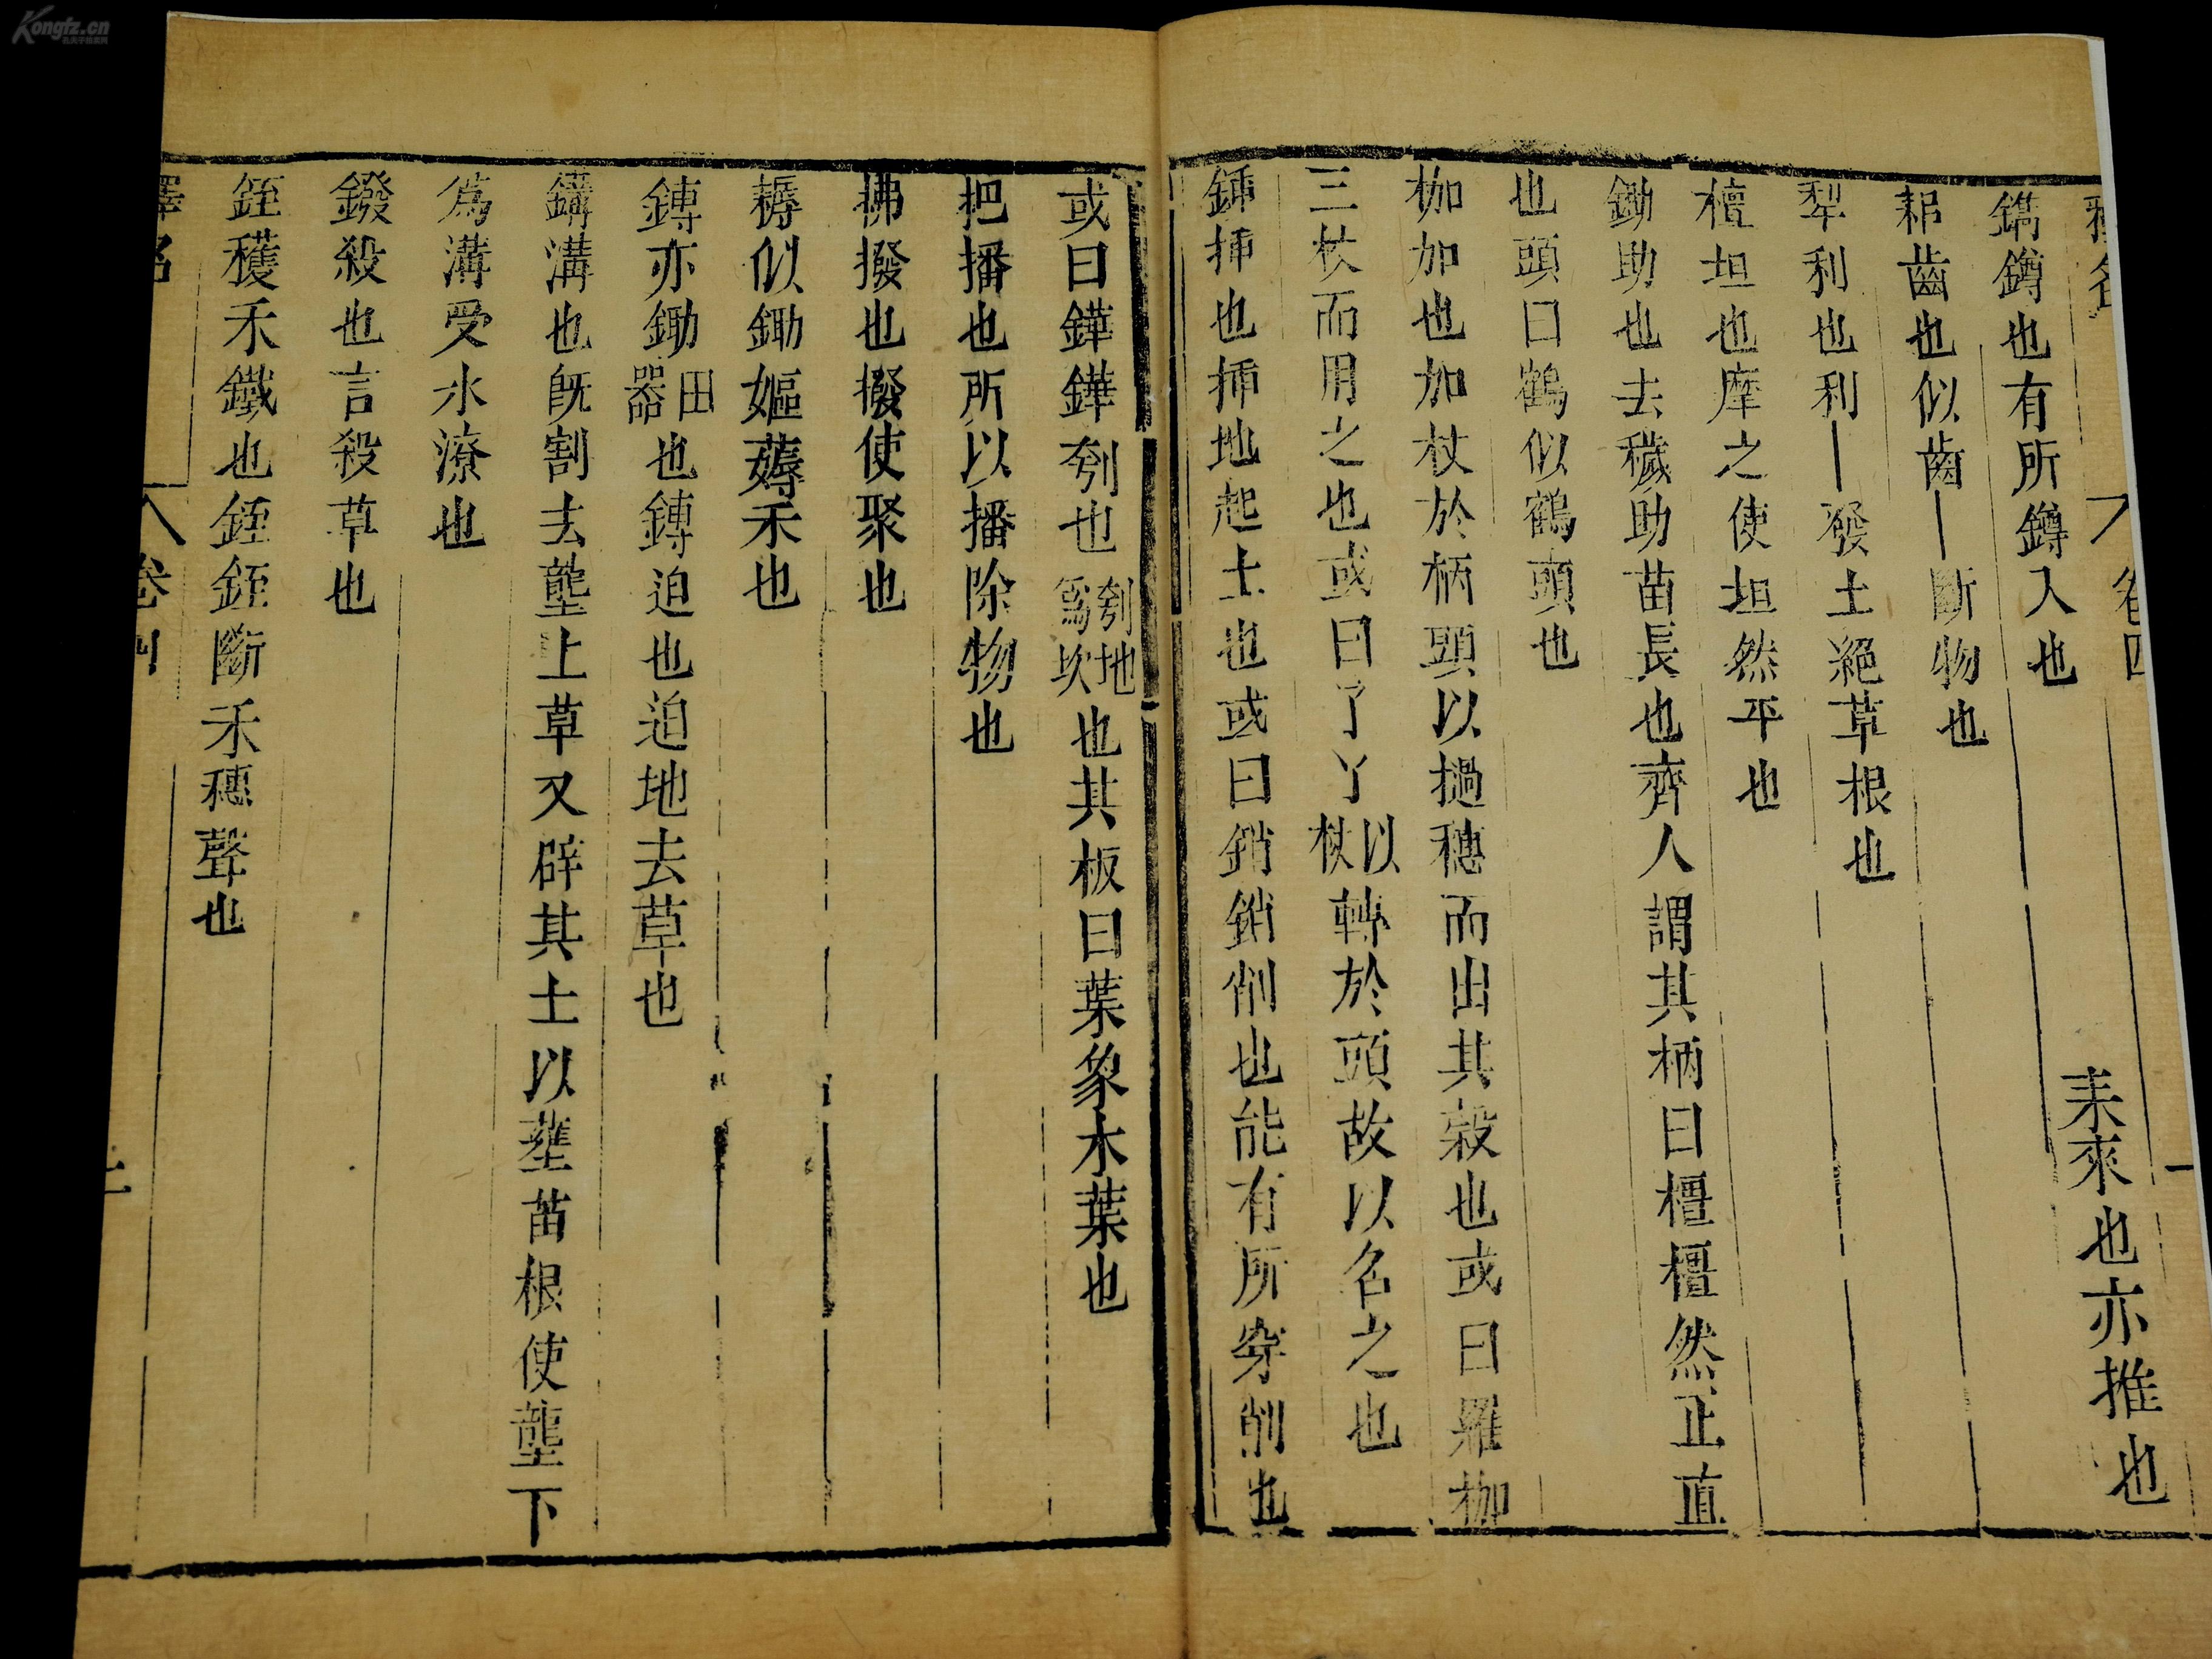 Kongfz.cn
釋名 卷四
鐫鐏也有所鐏入也 耒來也亦推也
耜齒也似齒｜斷物也
犂利也利｜發土絕草根也
檀坦也摩之使坦然平也
鋤助也去穢助苗長也齊人謂其柄曰橿橿然正直
也頭曰鶴似鶴頭也
枷加也加杖於柄頭以撾穗而出其穀也或曰羅枷
三杖而用之也或曰了丫以杖轉於頭故以名之也
鍤揷也揷地起土也或曰銷銷削也能有所穿削也
或曰鏵鏵刳也刳地爲坎也其板曰葉象木葉也
把播也所以播除物也
拂撥也撥使聚也
耨似鋤嫗薅禾也
鎛亦鋤田器也鎛迫也迫地去草也
鐟溝也旣割去壟上草又辟其土以壅苗根使壟下
爲溝受水潦也
鏺殺也言殺草也
銍穫禾鐵也銍銍斷禾穗聲也
釋名 卷四